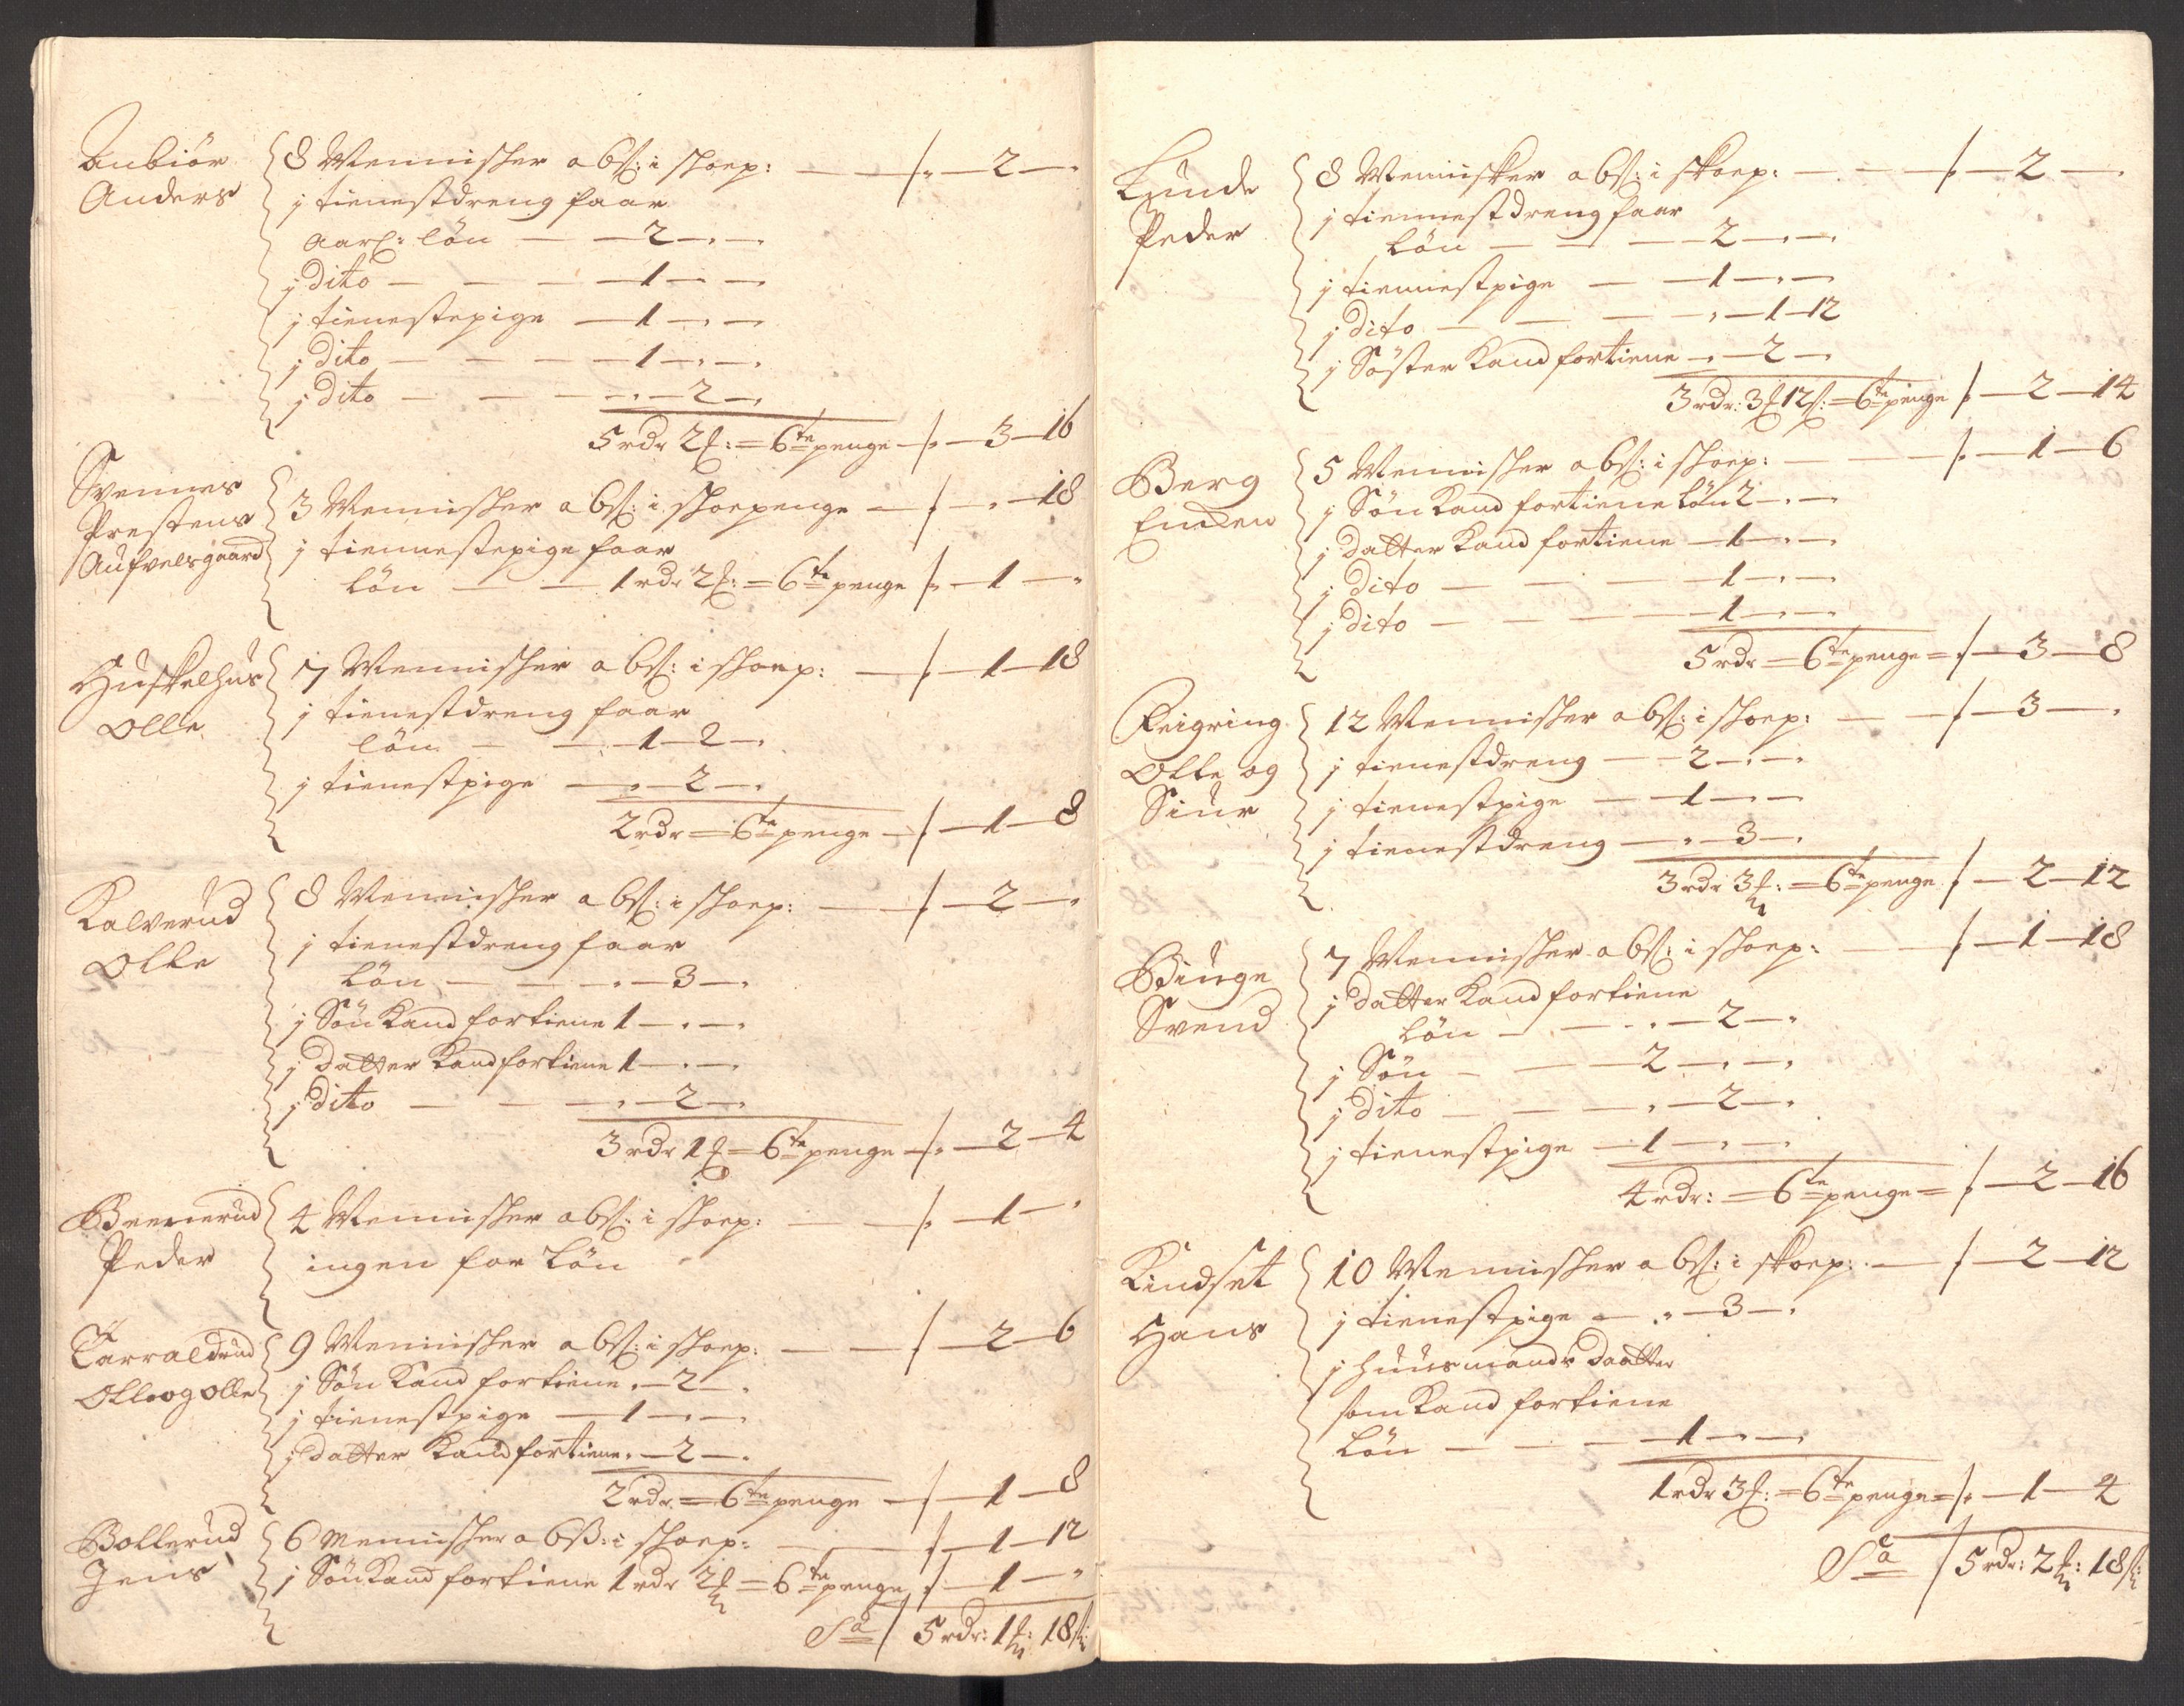 Anbiör
Anders
8 Mennisker a 6s: i skoep: — — /: — 2 — "
j tienestdreng faar
Aarl: lön — — 2 — " — "
j dito — — — 1 — " — "
j tienestepige — 1 — " — "
j dito — — — 1 — " — "
j dito — — — " — 2 — "
5 rdr 2 f: = 6te penge — /: — 3 — 16
Svennes
Prestens
Aufvelsgaard
3 Mennisker a 6s: i skoepenge — /: — " — 18
j tiennestepige faar
lön — — 1 rdr 2 f: = 6te penge /: — 1 — "
Huskelhus
Olle
7 Mennisker a 6s: i skoep: — /: — 1 — 18
j tienestdreng faar
lön — — 1 — 2 — "
j tienestpige — " — 2 — "
2 rdr = 6te penge — /: — 1 — 8
Kalverud
Olle
8 Mennisker a 6s: i skoep: — /: — 2 — "
j tienestdreng faar
lön — — " — 3 — "
j Sön kand fortiene 1 — " — "
j datter kand fortiene 1 — " — "
j dito — — — " — 2 — "
3 rdr 1 f = 6te penge — /: — 2 — 4
Peder
4 Mennisker a 6s: i skoep: — — /: — 1 — "
ingen for Lön
Tarraldrud
Olle og Olle
9 Mennisker a 6s: i skoep: — — /: — 2 — 6
j Sön kand fortiene " — 2 — "
j tienestpige — 1 — " — "
j datter kand fortiene " — 2 — "
2 rdr = 6te penge — /: — 1 — 8
Bollerud
Jens
6 Mennisker a 6s: i skoep: — — /: — 1 — 12
j Sön kand fortiene 1 rdr 2 f = 6te penge /: — 1 — "
Sa / 5 rdr: 1 f: 18 s:
Lunde
Peder
8 Mennisker a 6s: i skoep: — — — /: — 2 — "
j tiennestdreng faar
Lön — — — 2 — " — "
j tiennestpige — — 1 — " — "
j dito — — — " — 1 — 12
j Söster kand fortiene — " — 2 — "
3 rdr: 3 f 12 s: = 6te penge /: — 2 — 14
Berg
Enden
5 Mennisker a 6s: i skoep: — — /: — 1 — 6
j Sön kand fortiene Lön 2 — " — "
j datter kand fortiene — 1 — " — "
j dito — — — 1 — " — "
j dito — — — 1 — " — "
5 rdr = 6te penge = /: — 3 — 8
Reigring
Olle og
Siur
12 Mennisker a 6s: i skoep: — — /: — 3 — "
j tienestdreng — — 2 — " — "
j tienestpige — — 1 — " — "
j tienestdreng — " — 3 — "
3 rdr 3 f: = 6te penge /: — 2 — 12
Binge
Svend
7 Mennisker a 6s: i skoep: — — /: — 1 — 18
j datter kand fortiene
Lön — — " — 2 — "
j Sön — — — 2 — " — "
j dito — — — " — 2 — "
j tienestpige — 1 — " — "
4 rdr: = 6te penge = /: — 2 — 16
Kindset
Hans
10 Mennisker a 6s: i skoep: — /: — 2 — 12
j tienestpige — " — 3 — "
j huusmands daatter
som kand fortiene
Lön — — — 1 — " — "
1 rdr 3 f: = 6te penge = /: — 1 — 4
Sa / 5 rdr: 2 f: 18 s: